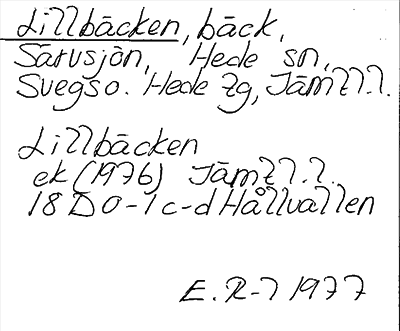 Lillbäcken, bäck,
Särvsjön, Hede sn,
Svegs o. Hede tg, Jämtl.l.
Lillbäcken
ek (1976) Jämtl.l.
18D 0-1 c-d Hållvallen
E. R-7 1977